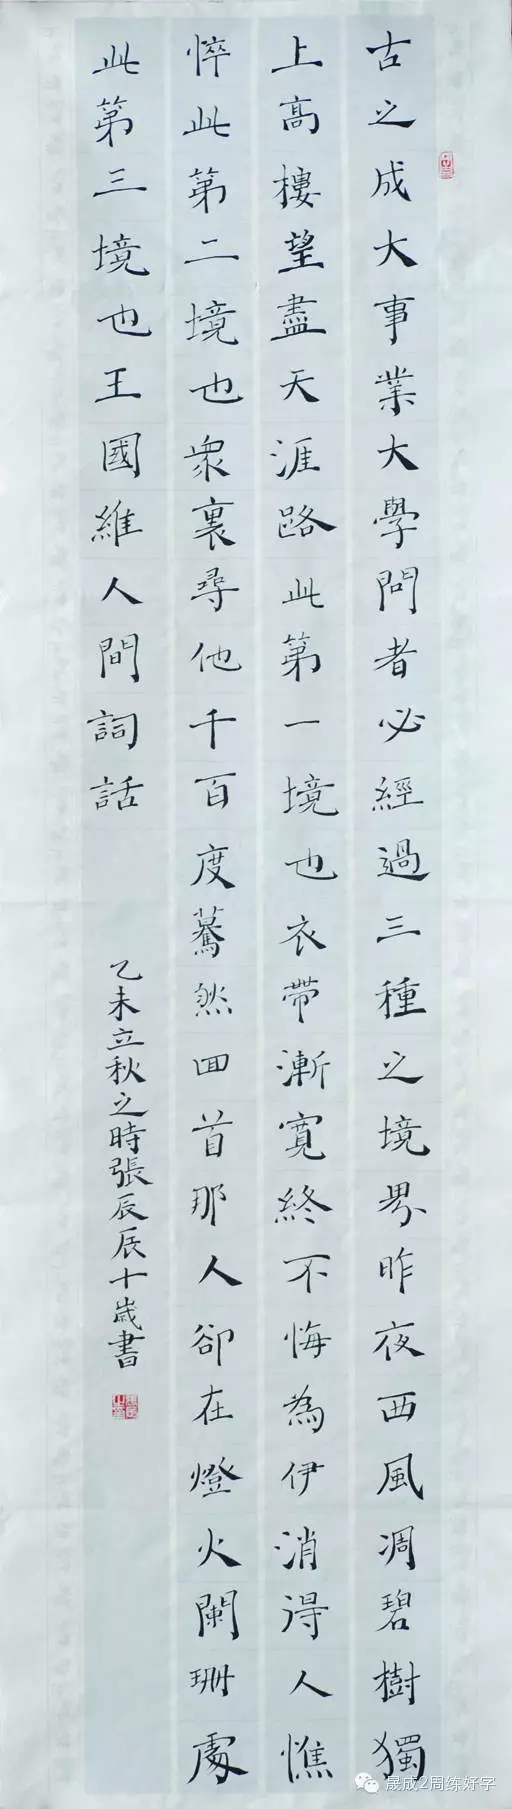 古之成大事業大學問者必經過三種之境界昨夜西風凋碧樹獨
上高樓望盡天涯路此第一境也衣帶漸寬終不悔為伊消得人憔
悴此第二境也眾裏尋他千百度驀然回首那人卻在燈火闌珊處
此第三境也王國維人間詞話
乙未立秋之時張辰辰十歲書
晟成2周练好字